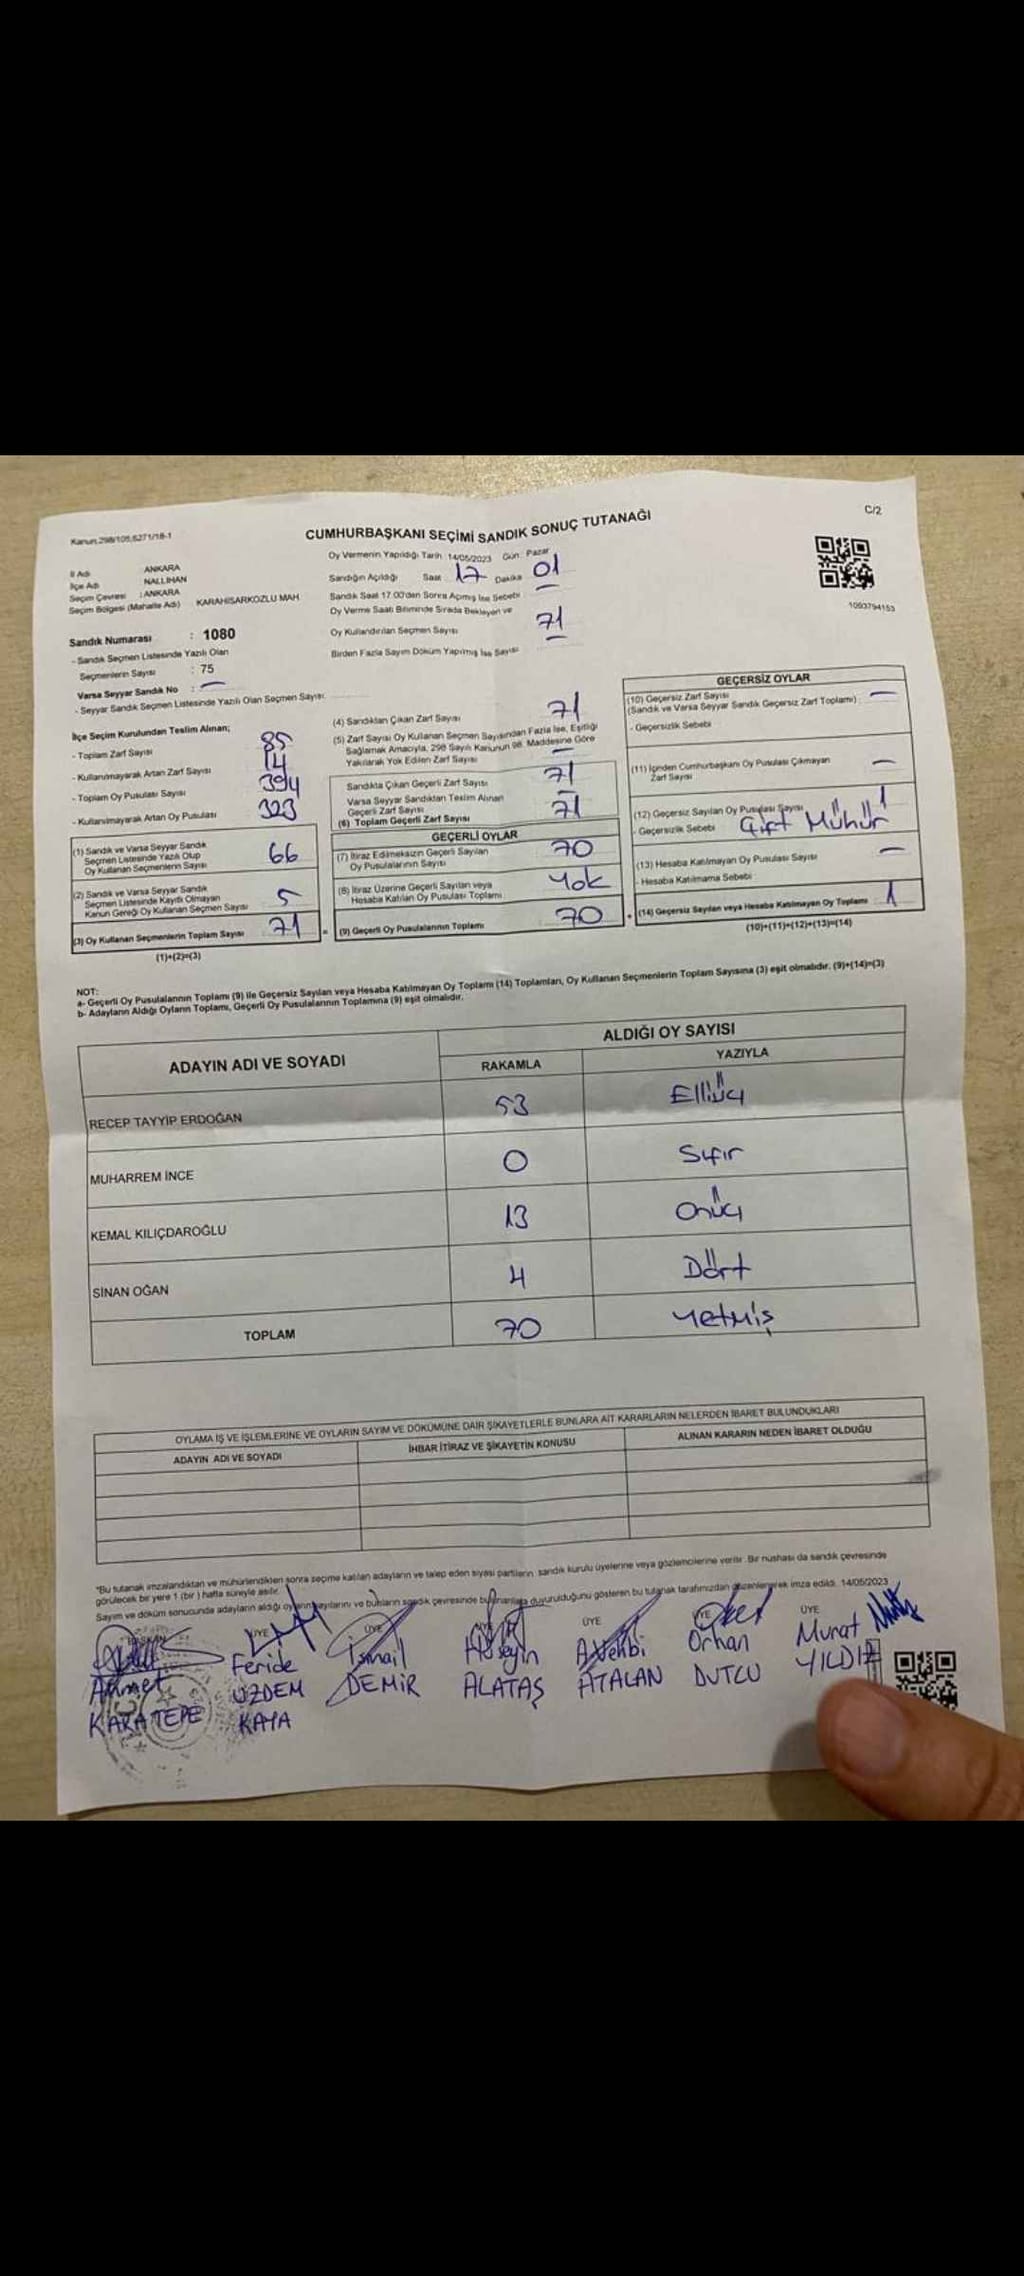 Kanun:298/105,6271/18-1
C/2
CUMHURBAŞKANI SEÇİMİ SANDIK SONUÇ TUTANAĞI
Oy Vermenin Yapıldığı Tarih: 14/05/2023 Gün: Pazar
İl Adı ANKARA
İlçe Adı NALLIHAN
Seçim Çevresi : ANKARA
Seçim Bölgesi (Mahalle Adı) KARAHİSARKOZLU MAH.
Sandığın Açıldığı Saat 17 Dakika 01
Sandık Saat 17.00'den Sonra Açılmış İse Sebebi : —
Oy Verme Saati Bitiminde Sırada Bekleyen ve
Oy Kullandırılan Seçmen Sayısı 71
Birden Fazla Sayım Döküm Yapılmış İse Sayısı —
1093794153
Sandık Numarası : 1080
- Sandık Seçmen Listesinde Yazılı Olan
Seçmenlerin Sayısı : 75
Varsa Seyyar Sandık No : —
- Seyyar Sandık Seçmen Listesinde Yazılı Olan Seçmen Sayısı:
İlçe Seçim Kurulundan Teslim Alınan;
- Toplam Zarf Sayısı 85
- Kullanılmayarak Artan Zarf Sayısı 14
- Toplam Oy Pusulası Sayısı 394
- Kullanılmayarak Artan Oy Pusulası 323
(1) Sandık ve Varsa Seyyar Sandık
Seçmen Listesinde Yazılı Olup
Oy Kullanan Seçmenlerin Sayısı 66
(2) Sandık ve Varsa Seyyar Sandık
Seçmen Listesinde Kayıtlı Olmayan
Kanun Gereği Oy Kullanan Seçmen Sayısı 5
(3) Oy Kullanan Seçmenlerin Toplam Sayısı 71 =
(1)+(2)=(3)
(4) Sandıktan Çıkan Zarf Sayısı 71
(5) Zarf Sayısı Oy Kullanan Seçmen Sayısından Fazla İse, Eşitliği
Sağlamak Amacıyla, 298 Sayılı Kanunun 98. Maddesine Göre
Yakılarak Yok Edilen Zarf Sayısı —
Sandıkta Çıkan Geçerli Zarf Sayısı 71
Varsa Seyyar Sandıktan Teslim Alınan
Geçerli Zarf Sayısı —
(6) Toplam Geçerli Zarf Sayısı 71
GEÇERLİ OYLAR
(7) İtiraz Edilmeksizin Geçerli Sayılan
Oy Pusulalarının Sayısı 70
(8) İtiraz Üzerine Geçerli Sayılan veya
Hesaba Katılan Oy Pusulası Toplamı Yok
(9) Geçerli Oy Pusulalarının Toplamı 70 +
GEÇERSİZ OYLAR
(10) Geçersiz Zarf Sayısı
(Sandık ve Varsa Seyyar Sandık Geçersiz Zarf Toplamı) : —
- Geçersizlik Sebebi
(11) İçinden Cumhurbaşkanı Oy Pusulası Çıkmayan
Zarf Sayısı —
(12) Geçersiz Sayılan Oy Pusulası Sayısı 1
- Geçersizlik Sebebi Çift Mühür
(13) Hesaba Katılmayan Oy Pusulası Sayısı —
- Hesaba Katılmama Sebebi
(14) Geçersiz Sayılan veya Hesaba Katılmayan Oy Toplamı : 1
(10)+(11)+(12)+(13)=(14)
NOT:
a- Geçerli Oy Pusulalarının Toplamı (9) ile Geçersiz Sayılan veya Hesaba Katılmayan Oy Toplamı (14) Toplamları, Oy Kullanan Seçmenlerin Toplam Sayısına (3) eşit olmalıdır. (9)+(14)=(3)
b- Adayların Aldığı Oyların Toplamı, Geçerli Oy Pusulalarının Toplamına (9) eşit olmalıdır.
ADAYIN ADI VE SOYADI ALDIĞI OY SAYISI
RAKAMLA YAZIYLA
RECEP TAYYİP ERDOĞAN 53 Elliüç
MUHARREM İNCE 0 Sıfır
KEMAL KILIÇDAROĞLU 13 Onüç
SİNAN OĞAN 4 Dört
TOPLAM 70 Yetmiş
OYLAMA İŞ VE İŞLEMLERİNE VE OYLARIN SAYIM VE DÖKÜMÜNE DAİR ŞİKAYETLERLE BUNLARA AİT KARARLARIN NELERDEN İBARET BULUNDUKLARI
ADAYIN ADI VE SOYADI İHBAR İTİRAZ VE ŞİKAYETİN KONUSU ALINAN KARARIN NEDEN İBARET OLDUĞU
*Bu tutanak imzalandıktan ve mühürlendikten sonra seçime katılan adayların ve talep eden siyasi partilerin sandık kurulu üyelerine veya gözlemcilerine verilir. Bir nüshası da sandık çevresinde
görülecek bir yere 1 (bir ) hafta süreyle asılır.
Sayım ve döküm sonucunda adayların aldığı oyların sayılarını ve bunların sandık çevresinde duyurulduğunu gösteren bu tutanak tarafımızdan düzenlenerek imza edildi. 14/05/2023
BAŞKAN ÜYE ÜYE ÜYE ÜYE ÜYE
Ahmet Feride İsmail Hüseyin A.Vehbi Orhan Murat
KARATEPE ÜZDEM DEMİR ALATAŞ ATALAN DUTCU YILDIZ
KAYA